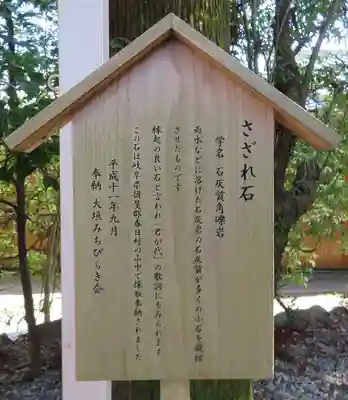 さざれ石
学名 石灰質角礫岩
雨水などに溶けた石灰岩の石灰質が多くの小石を凝結
させたものです
縁起の良い石と言われ「君が代」の歌詞にもみられます
この石は岐阜県揖斐郡春日村の山中で採取奉納されました
平成十一年九月
奉納 大垣みちびらき会